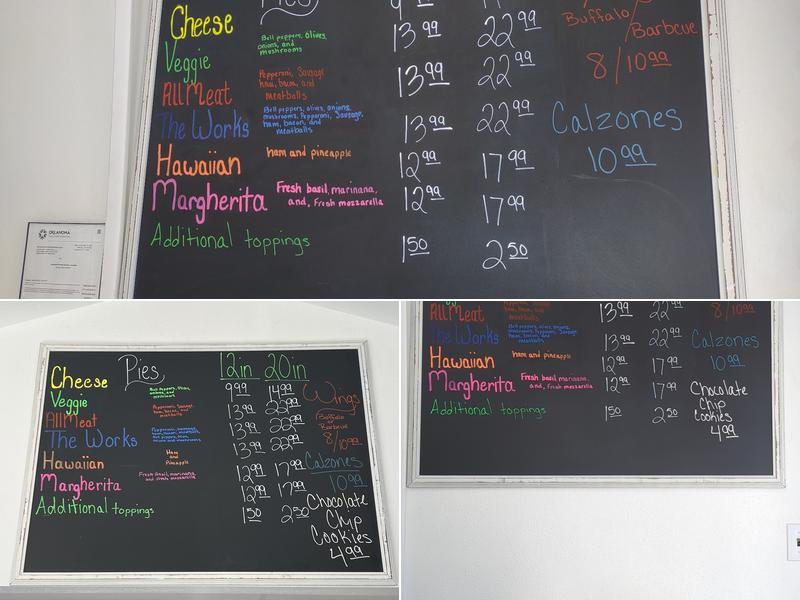 Pies
Cheese
Veggie Bell peppers, Olives,
onions, and
mushrooms 13 99 22 99
All Meat Pepperoni, Sausage
ham, bacon, and
meatballs 13 99 22 99
The Works Bell peppers, olives, onions,
mushrooms, Pepperoni, Sausage,
ham, bacon, and
meatballs 13 99 22 99
Hawaiian ham and pineapple 12 99 17 99
Margherita Fresh basil, marinana,
and, Fresh mozzarella 12 99 17 99
Additional toppings 1 50 2 50
Buffalo/Barbcue
8/10 99
Calzones
10 99
OKLAHOMA
Pies 12in 20in
Cheese 9 99 14 99
Veggie Bell Peppers, Olives,
onions, and
mushrooms 13 99 22 99
All Meat Pepperoni, Sausage,
ham, bacon, and
meatballs 13 99 22 99
The Works 13 99 22 99
Hawaiian Ham
and
Pineapple 12 99 17 99
Margherita Fresh basil, marinana,
and Fresh mozzarella 12 99 17 99
Additional toppings 1 50 2 50
Wings
Buffalo
or
Barbcue
8/10 99
Calzones
10 99
Chocolate
Chip
Cookies
4 99
All Meat meatballs 13 99 22 99
The Works Bell peppers, olives, onions,
mushrooms, Pepperoni, Sausage,
ham, bacon, and
meatballs 13 99 22 99
Hawaiian ham and pineapple 12 99 17 99
Margherita Fresh basil, marinana,
and, Fresh mozzarella 12 99 17 99
Additional toppings 1 50 2 50
8/10 99
Calzones
10 99
Chocolate
Chip
Cookies
4 99